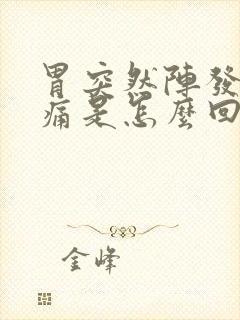 胃突然陣發
痛是怎麼回
金峰